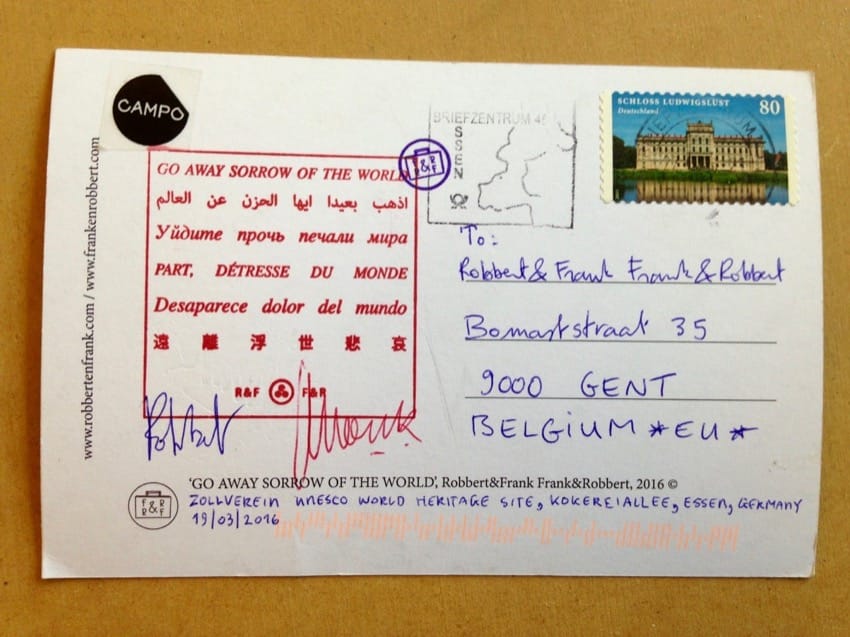 CAMPO
www.robbertenfrank.com / www.frankenrobbert.com
GO AWAY SORROW OF THE WORLD
اذهب بعيدا ايها الحزن عن العالم
Уйдите прочь печали мира
PART, DÉTRESSE DU MONDE
Desaparece dolor del mundo
遠離浮世悲哀
R&F F&R
Robbert
F&R
R&F
BRIEFZENTRUM 45
ESSEN
SCHLOSS LUDWIGSLUST 80
Deutschland
To:
Robbert&Frank Frank&Robbert
Bomastraat 35
9000 GENT
BELGIUM *EU*
'GO AWAY SORROW OF THE WORLD', Robbert&Frank Frank&Robbert, 2016 ©
F&R
R&F
ZOLLVEREIN UNESCO WORLD HERITAGE SITE, KOKEREIALLEE, ESSEN, GERMANY
19/03/2016